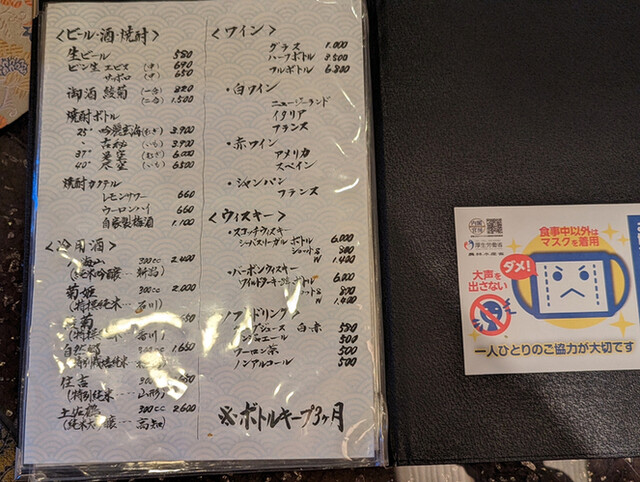 <ビール・酒・焼酎>
生ビール 580
ビン生 エビス (中) 690
サッポロ (中) 650
御酒 綾菊 (一合) 820
(二合) 1.500
焼酎ボトル
25° 吟麗玄海(むぎ) 3.900
〃 (いも) 3.900
37° (むぎ) 6.000
40° 尽空 (いも) 6500
焼酎カクテル
レモンサワー 660
ウーロンハイ 660
自家製梅酒 1.100
<冷用酒>
八海山 300cc
(純米吟醸… 新潟)
菊姫 300cc 2.000
(特撰純米… 石川)
菊
自然郷 1.650
特別純米
住吉 300cc
(特別純米… 山形)
土佐鶴 300cc 2,600
(純米大 高知)
<ワイン>
グラス 1.000
ハーフボトル 3.500
フルボトル 6.800
・白ワイン
ニュージーランド
イタリア
フランス
・赤ワイン
アメリカ
スペイン
・シャンパン
フランス
<ウィスキー>
・スコッチウィスキー
シーバスリーガル ボトル 6.000
ショットS 800
W 1.400
・バーボンウィスキー
ワイルドターキー ボトル 6.000
S 800
W 1.400
ジュース 白 赤 550
ジンジャエール 500
ウーロン茶 500
ノンアルコール 500
※ボトルキープ3ヶ月
厚生労働省
農林水産省
食事中以外は
マスクを着用
ダメ!
大声を
出さない
一人ひとりのご協力が大切です